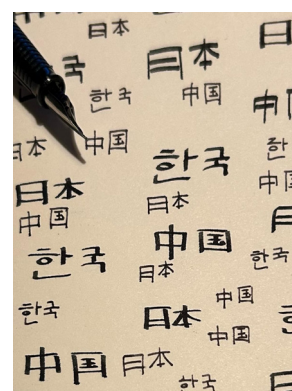 日本
日本
한국
中国
中国
日本
中国
한국
日本
日本
中国
中国
한국
한국
日本
中国
한국
日本
中国
中国
日本
한국